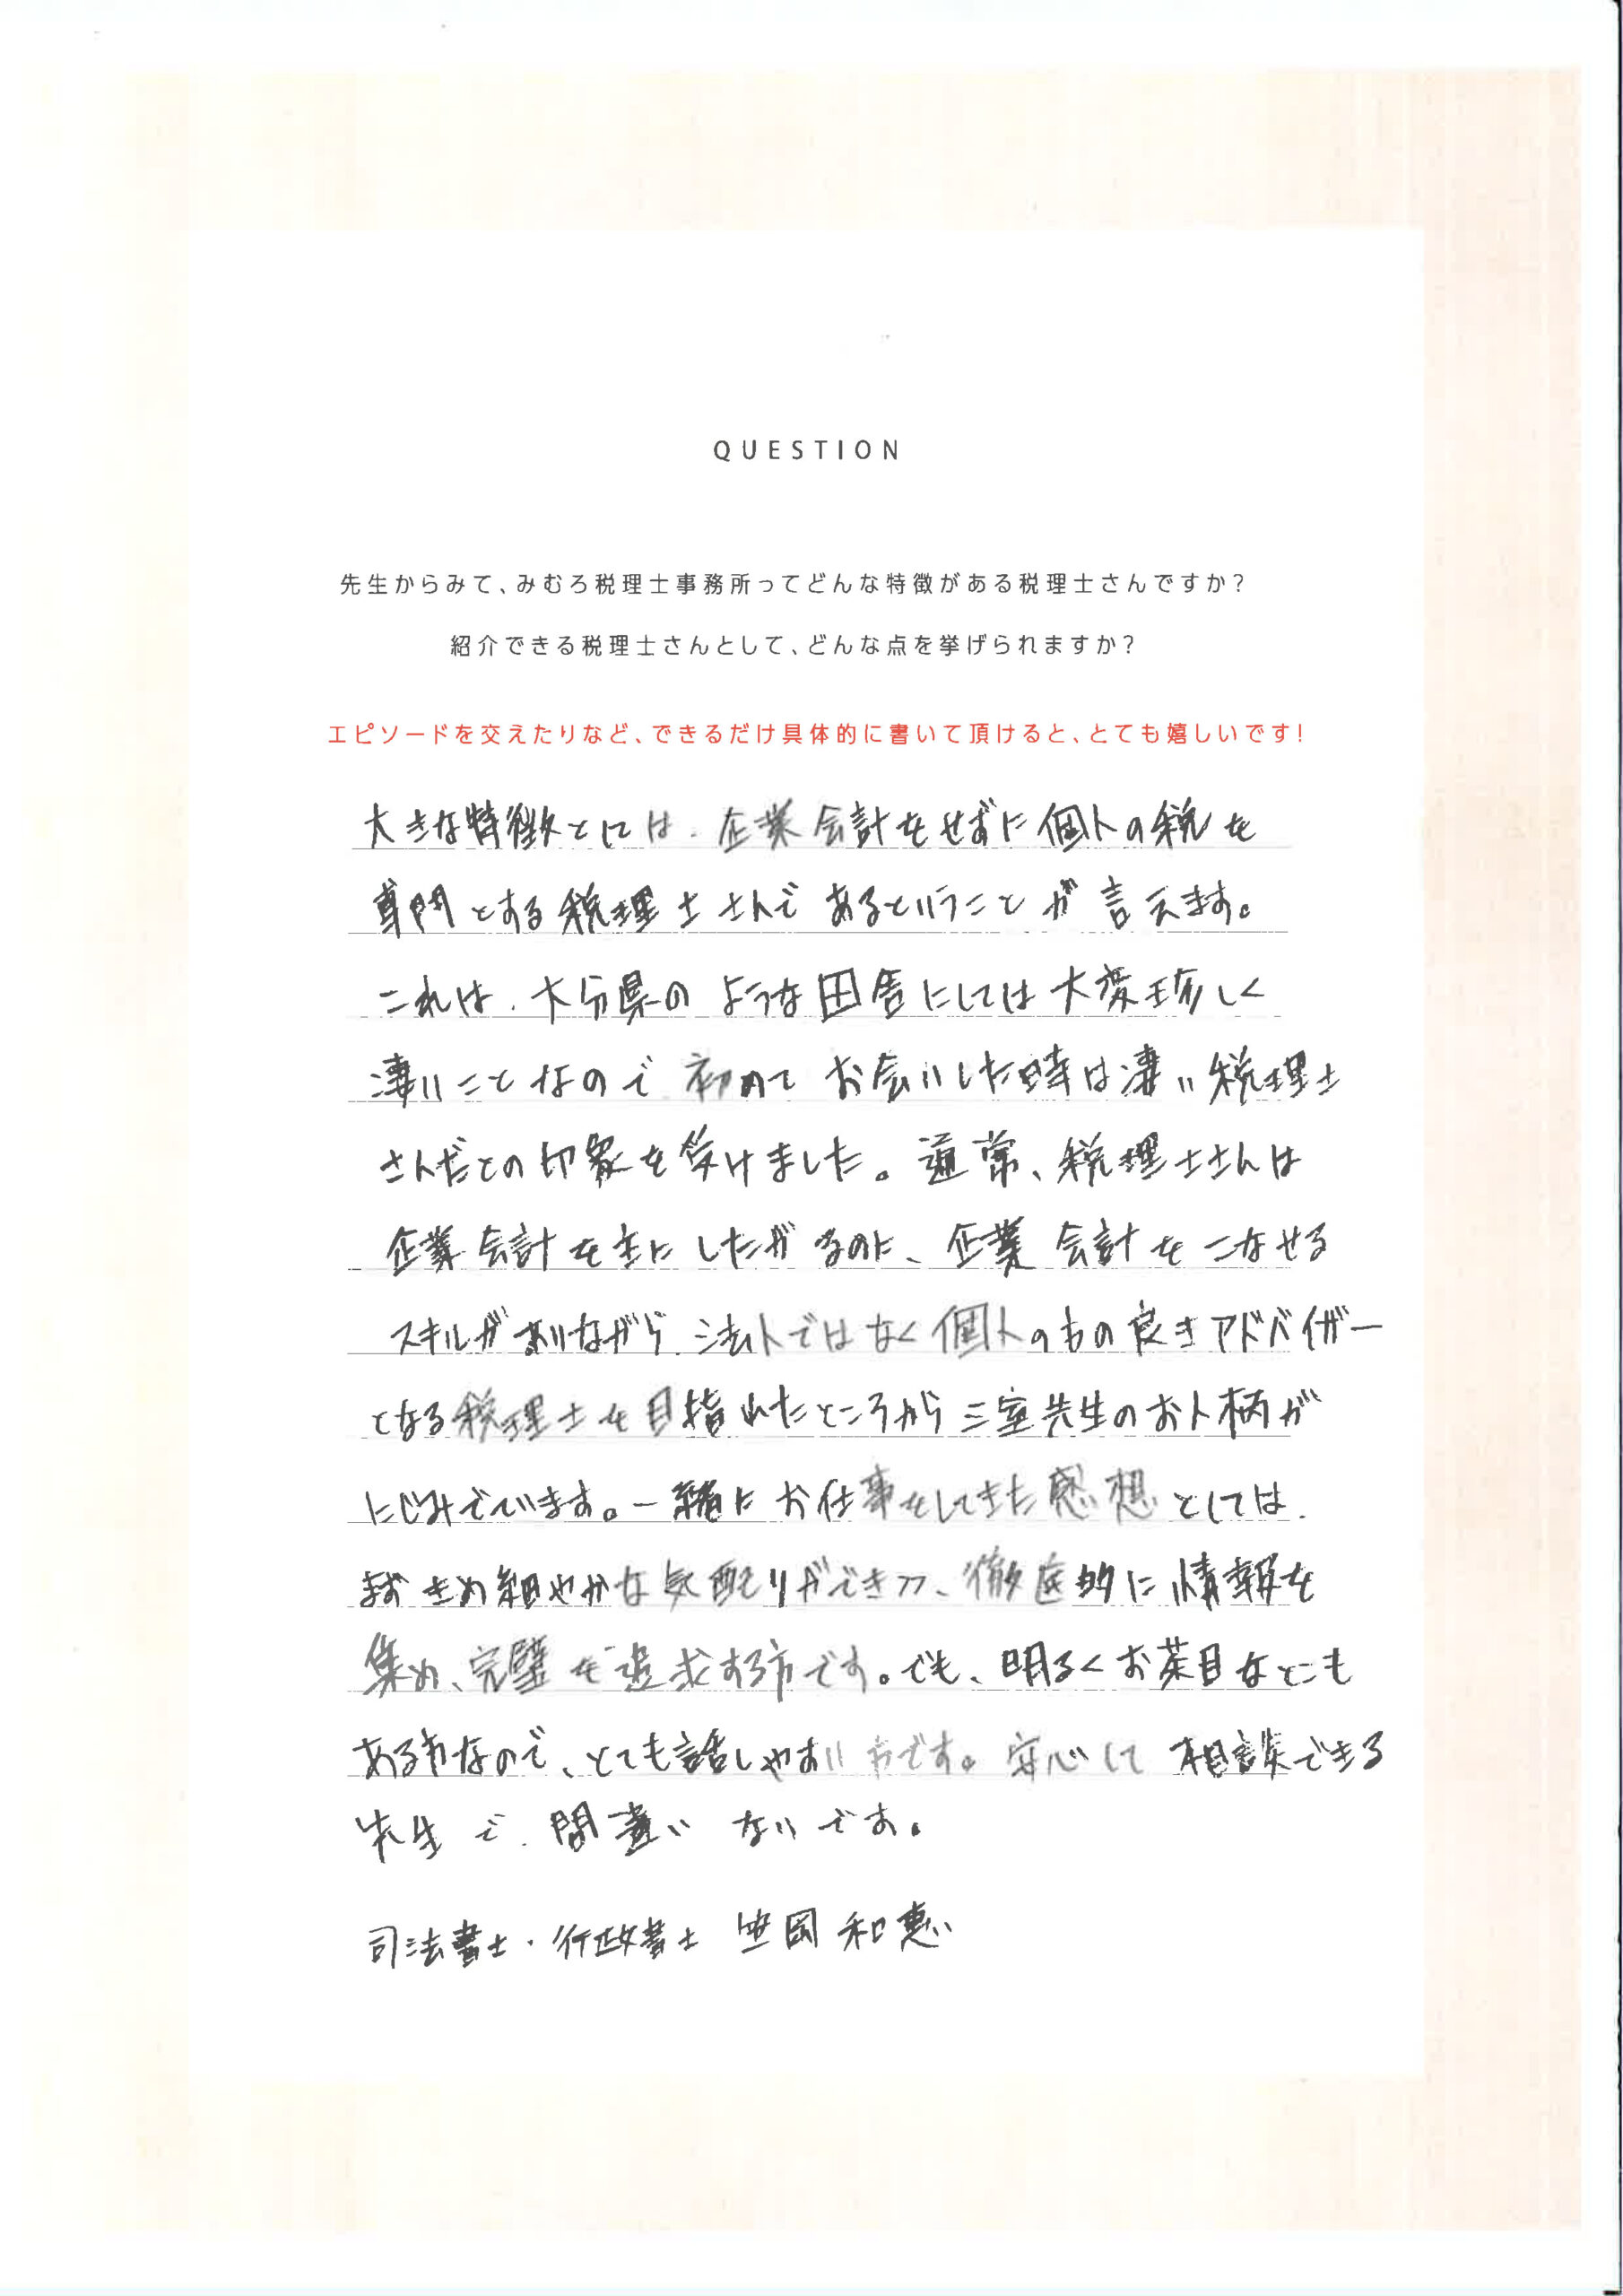 QUESTION
先生からみて、みむろ税理士事務所ってどんな特徴がある税理士さんですか?
紹介できる税理士さんとして、どんな点を挙げられますか?
エピソードを交えたりなど、できるだけ具体的に書いて頂けると、とても嬉しいです!
大きな特徴とには、企業会計をせずに個人の税を
専門とする税理士さんであるということが言えます。
これは、大分県のような田舎にしては大変珍しく
凄いことなので初めてお会いした時は凄い税理士
さんだとの印象を受けました。通常、税理士さんは
企業会計を主にしたがるのに、企業会計をこなせる
スキルがありながら、法人ではなく個人のもの良きアドバイザー
となる税理士を目指れたところから三室先生のお人柄が
にじみでています。一緒にお仕事をしてきた感想としては、
まずきめ細やかな気配りができつつ、徹底的に情報を
集め、完璧を追求する方です。でも、明るくお茶目なとこも
ある方なので、とても話しやすい方です。安心して相談できる
先生で、間違いないです。
司法書士・行政書士 笠岡和恵